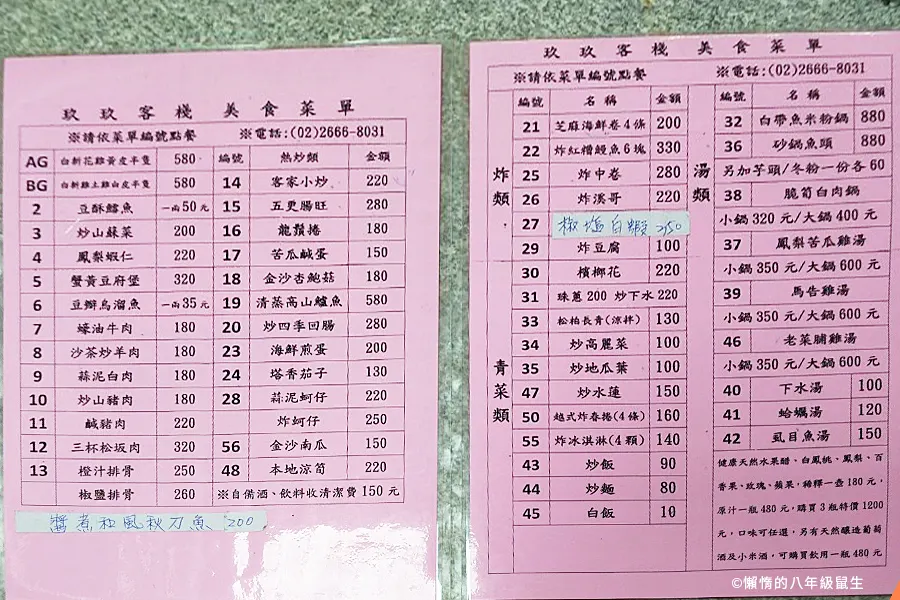 玖玖客棧 美食菜單
※請依菜單編號點餐 ※電話:(02)2666-8031
AG 白斬花雞黃皮半隻 580 編號 熱炒類 金額
BG 白斬雞土雞白皮半隻 580 14 客家小炒 220
2 豆酥鱈魚 一兩50元 15 五更腸旺 280
3 炒山蘇菜 200 16 龍鬚捲 180
4 鳳梨蝦仁 220 17 苦瓜鹹蛋 150
5 蟹黃豆腐堡 320 18 金沙杏鮑菇 180
6 豆瓣烏溜魚 一兩35元 19 清蒸高山鱸魚 580
7 蠔油牛肉 180 20 炒四季回腸 280
8 沙茶炒羊肉 180 23 海鮮煎蛋 200
9 蒜泥白肉 180 24 塔香茄子 130
10 炒山豬肉 180 28 蒜泥蚵仔 220
11 鹹豬肉 220 炸蚵仔 250
12 三杯松坂肉 320 56 金沙南瓜 150
13 橙汁排骨 250 48 本地涼筍 220
椒鹽排骨 260 ※自備酒、飲料收清潔費150元
醬煮和風秋刀魚 200
玖玖客棧 美食菜單
※請依菜單編號點餐 ※電話:(02)2666-8031
編號 名稱 金額
炸類
21 芝麻海鮮卷4條 200
22 炸紅糟鰻魚6塊 330
25 炸中卷 280
26 炸溪哥 220
27 椒塩白蝦 250
29 炸豆腐 100
30 檳榔花 220
青菜類
31 珠蔥200 炒下水220
33 松柏長青(涼拌) 130
34 炒高麗菜 100
35 炒地瓜葉 100
47 炒水蓮 150
50 越式炸春捲(4條) 160
55 炸冰淇淋(4顆) 140
43 炒飯 90
44 炒麵 80
45 白飯 10
編號 名稱 金額
湯類
32 白帶魚米粉鍋 880
36 砂鍋魚頭 880
另加芋頭/冬粉一份各60
38 脆筍白肉鍋
小鍋320元/大鍋400元
37 鳳梨苦瓜雞湯
小鍋350元/大鍋600元
39 馬告雞湯
小鍋350元/大鍋600元
46 老菜脯雞湯
小鍋350元/大鍋600元
40 下水湯 100
41 蛤蠣湯 120
42 虱目魚湯 150
健康天然水果醋、白鳳桃、鳳梨、百
香果、玫瑰、蘋果，稀釋一壺180元，
原汁一瓶480元，購買3瓶特價1200
元，口味可任選，另有天然釀造葡萄
酒及小米酒，可購買飲用一瓶480元
©懶惰的八年級鼠生